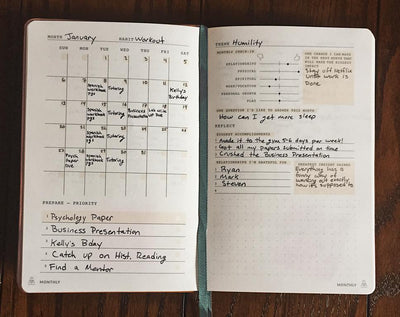 MONTH January HABIT Workout
SUN MON TUE WED THU FRI SAT
1 2 3 4 5
6 8 9 10 11
Spanish workbook Tutoring Kelly's Birthday
13 14 15 16 17 18 19
Spanish workbook Tutoring Business Presentation
20 21 22 23 24 25 26
Spanish workbook Tutoring
27 28 29 30 31
Psych Paper Due Spanish workbook Tutoring
PREPARE – PRIORITY
Psychology Paper
Business Presentation
Kelly's Bday
Catch up on Hist. Reading
Find a Mentor
MONTHLY
THEME Humility
MONTHLY CHECK-IN
RELATIONSHIPS
PHYSICAL
SPIRITUAL
WORK/VOCATION
PERSONAL GROWTH
PLAY
ONE CHANGE I CAN MAKE
IN THE NEXT MONTH THAT
WILL HAVE THE BIGGEST
IMPACT?
Stay off Netflix
until work is
Done
ONE QUESTION I'D LIKE TO ANSWER THIS MONTH
How can I get more sleep
REFLECT
BIGGEST ACCOMPLISHMENTS
made it to the gym 5-6 days per week!
Got all my papers submitted on time
Crushed the Business Presentation
RELATIONSHIPS I'M GRATEFUL FOR
Ryan
Mark
Steven
GREATEST INSIGHT GAINED
Everything has a
funny way of
working out exactly
how it's supposed to
MONTHLY